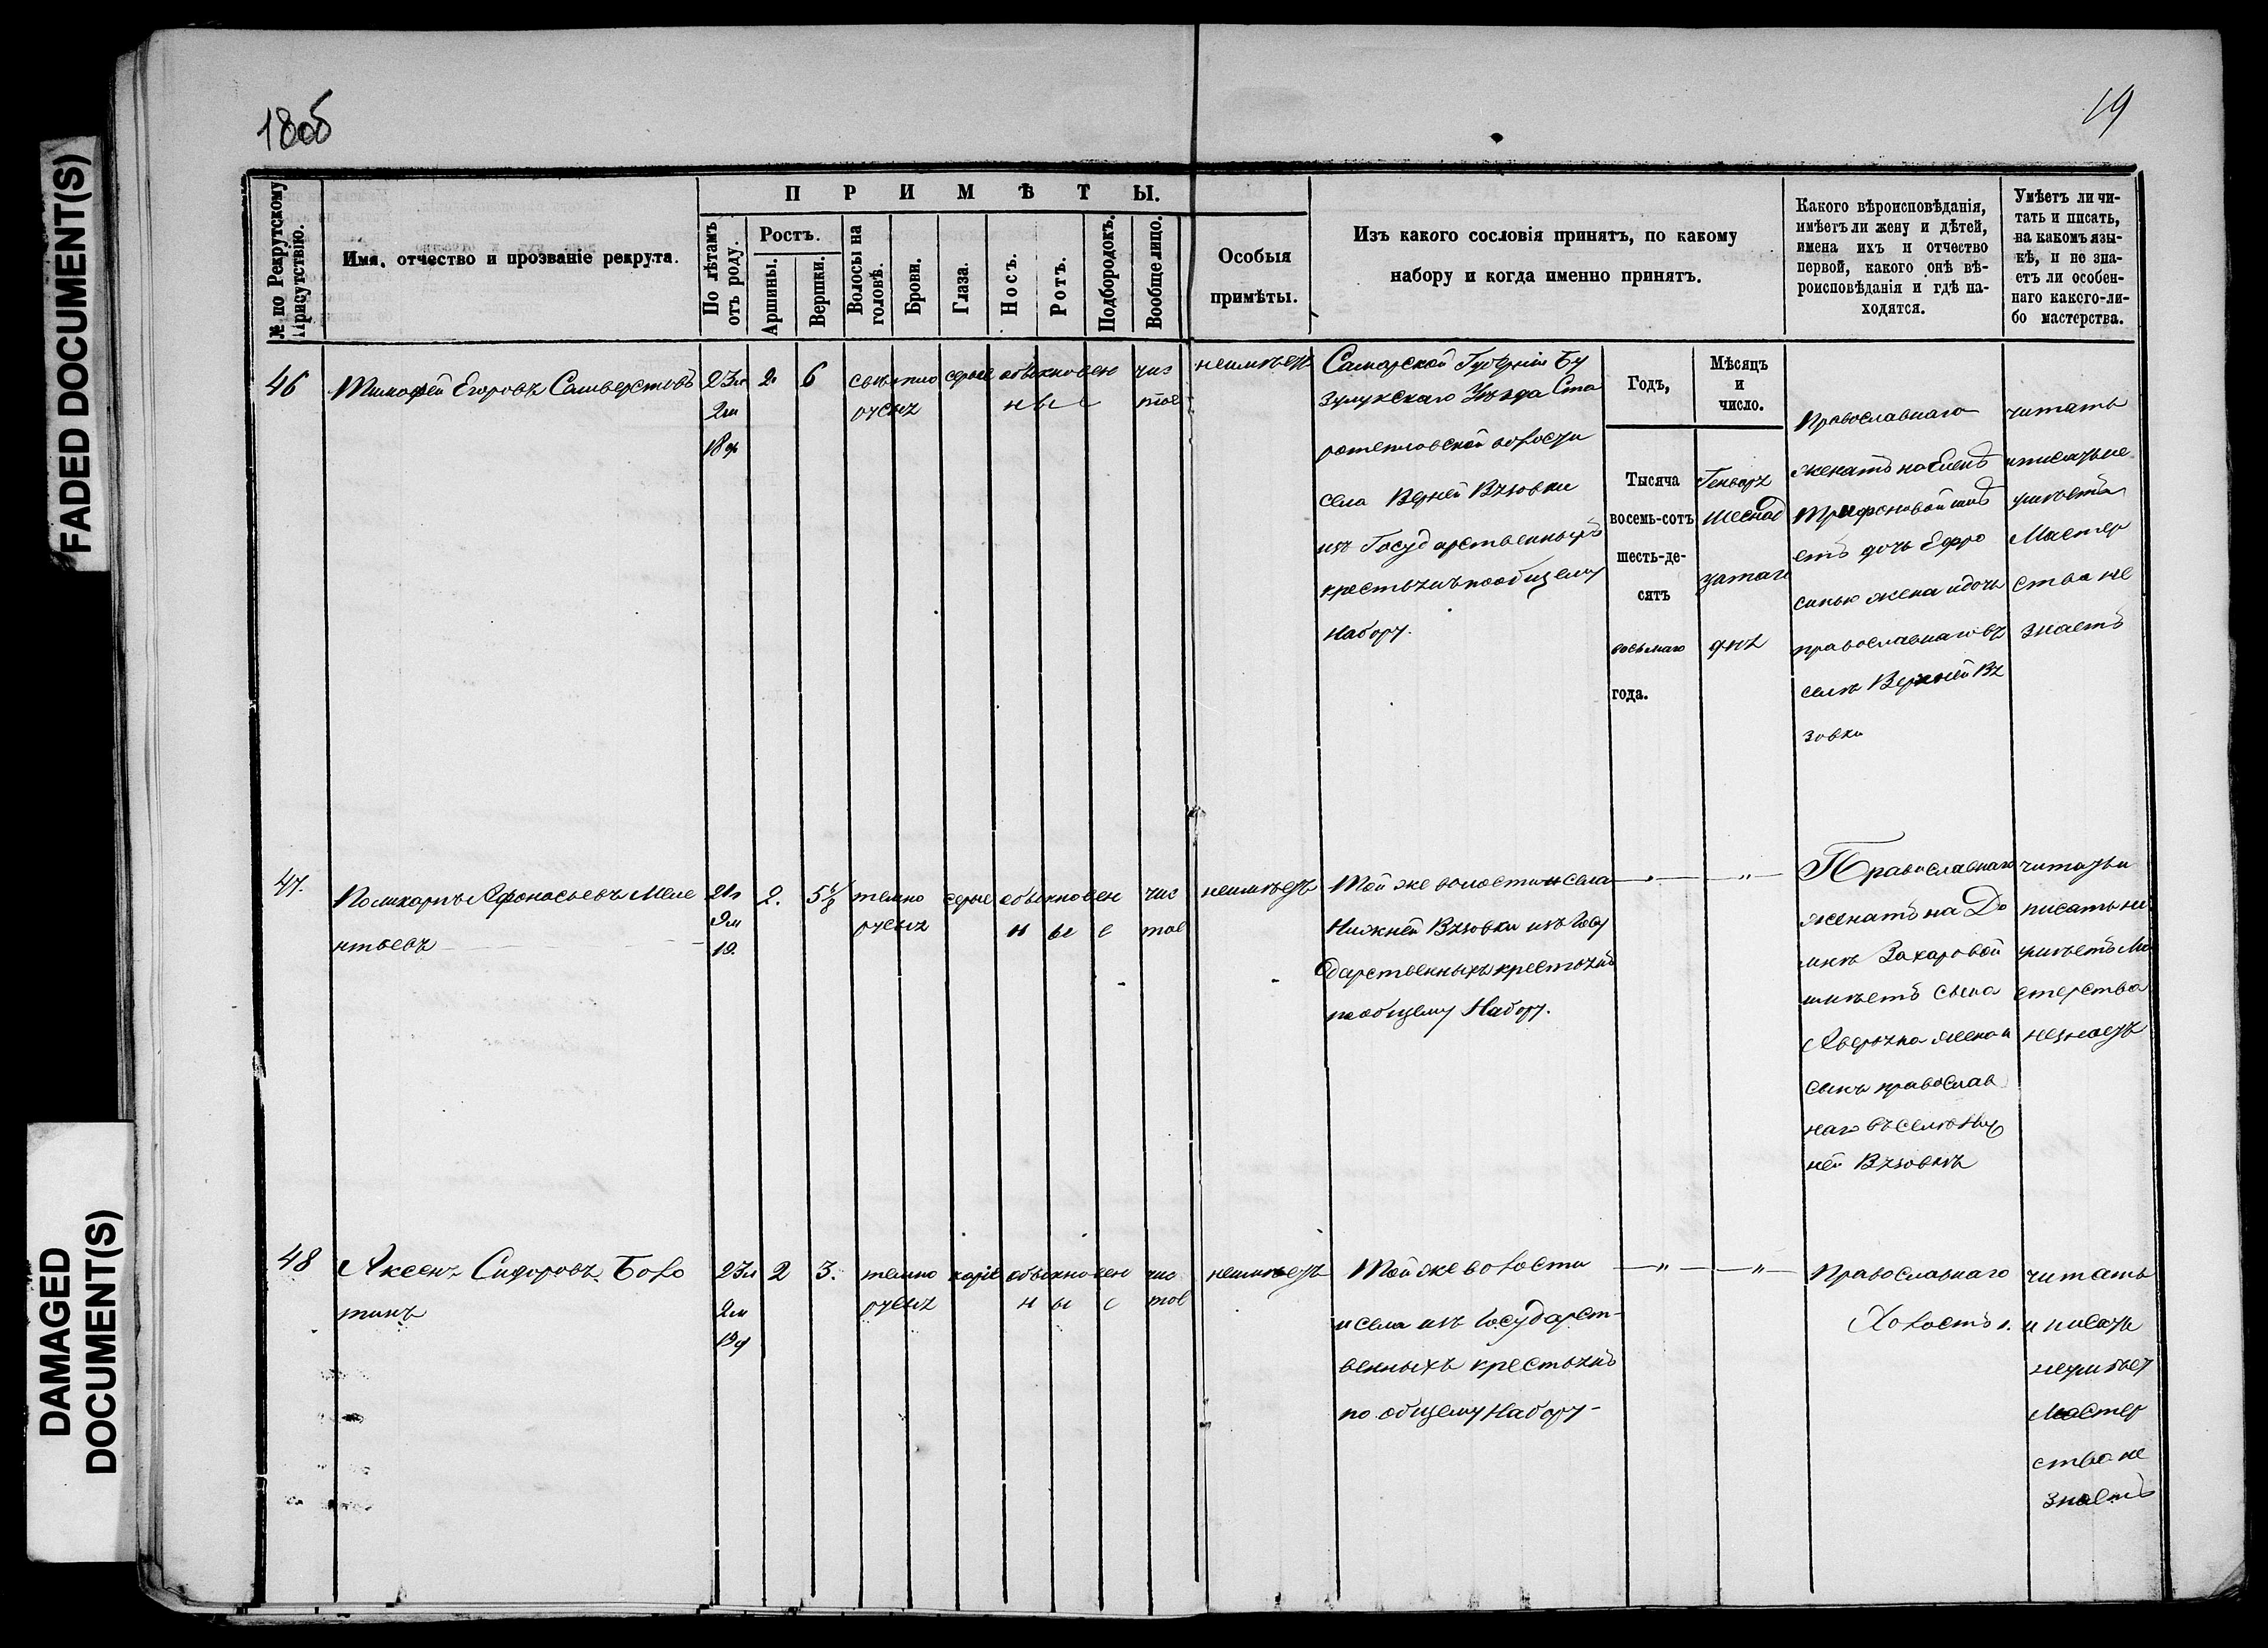 FADED DOCUMENT(S)
DAMAGED
DOCUMENT(S)
18об
19
№ по Рекрутскому
Присутствію.
Имя, отчество и прозваніе рекрута.
ПРИМѢТЫ.
По лѣтамъ
отъ роду.
Ростъ.
Аршины.
Вершки.
Волосы на
головѣ.
Брови.
Глаза.
Носъ.
Ротъ.
Подбородокъ.
Вообще лицо.
Особыя
примѣты.
Изъ какого сословія принятъ, по какому
набору и когда именно принятъ.
Какого вѣроисповѣданія,
имѣетъ ли жену и дѣтей,
имена ихъ и отчество
первой, какого онѣ вѣ-
роисповѣданія и гдѣ на-
ходятся.
Умѣетъ ли чи-
тать и писать,
на какомъ язы-
кѣ, и не зна-
етъ ли особен-
наго какого-ли-
бо мастерства.
46
Тимофей Егоровъ Сальверстовъ
23л
2м
18
2
6
свѣтло
русыя
серые
обыкновен
ные
чис
тое
неимѣетъ
Самарской Губерніи Бу
зулукскаго Уѣзда Ста
волости
села Верней Вязовки
изъ Государственныхъ
крестьянъ пообщему
набору.
Годъ,
Мѣсяцъ
и
число.
Тысяча
восемь-сотъ
шесть-де-
сятъ
восьмаго
года.
Генваря
шеснад
цатаго
дня
Православнаго
женатъ на Елен
Трифоновой имѣ
етъ дочь Ефро
синью жена и дочь
православнаго въ
селѣ Верхней Вя
зовки
читать
и писать не
умѣетъ
Мастер
ства не
знаетъ
47.
Поликарпъ Афонасьевъ Меле
нтьевъ
21л
9м
19.
2.
5 4/8
темно
русыя
серые
обыкновен
ные
чис
тое
неимѣетъ
Той же волости и села
Нижней Вязовки изъ Госу
дарственныхъ крестьянъ
пообщему Набору.
„
„
Православнаго
женатъ на До
мнѣ Захаровой
имѣетъ сына
Аверьяна жена и
сынъ православ
наго въ селѣ Ниж
ней Вязовкѣ
читать и
писать не
умѣетъ Ма
стерства
незнаетъ
48
Аксенъ Сидоровъ Боло
тинъ
23л
2м
19д
2
3.
темно
русыя
каріе
обыкновен
ные
чис
тое
неимѣетъ
Той же волости
и села изъ Государст-
венныхъ крестьянъ
по общему Набору-
„
„
Православнаго
Холостъ.
читать
и писать
неумѣет
Мастер
ства не
знаетъ